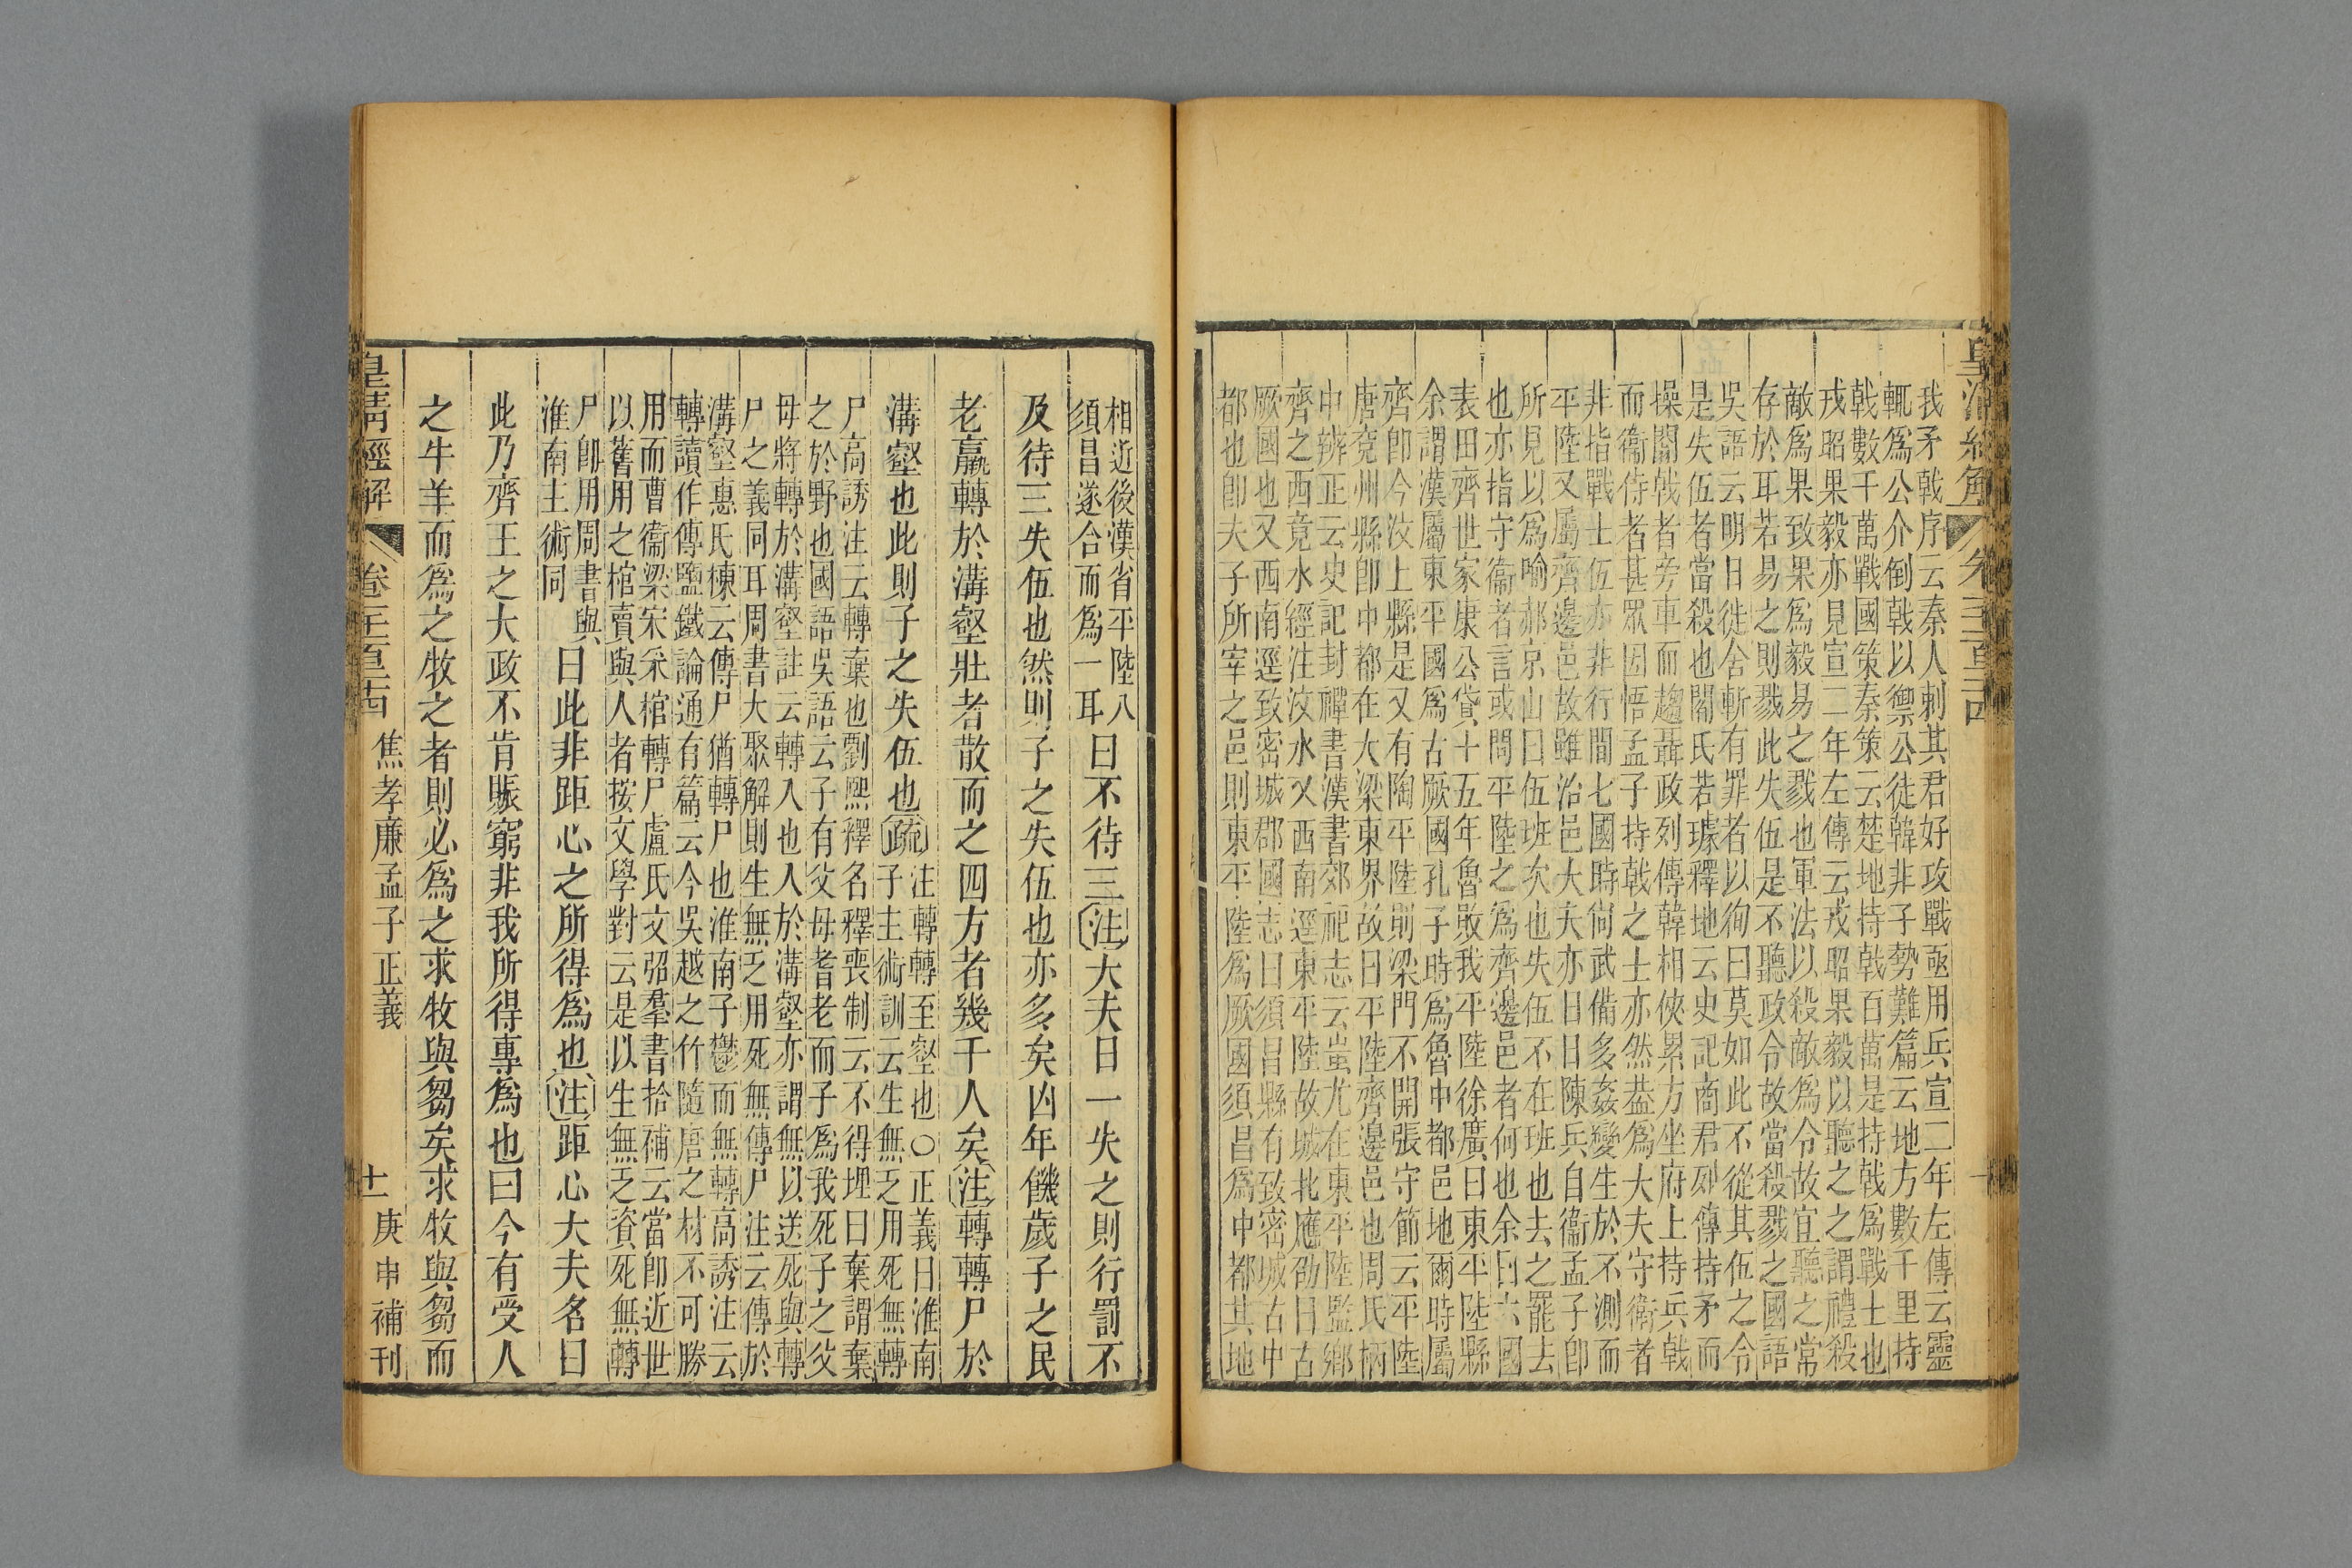 皇清經解 卷一千一百二十四
我矛戟序云秦人刺其君好攻戰亟用兵宣二年左傳云靈
輒爲公介倒戟以禦公徒韓非子勢難篇云地方數千里持
戟數千萬戰國策秦策云楚地持戟百萬是持戟爲戰士也
戎昭果毅亦見宣二年左傳云戎昭果毅以聽之之謂禮殺
敵爲果致果爲毅易之戮也軍法以殺敵爲令故宜聽之常
存於耳若易之則戮此失伍是不聽政令故當殺戮之國語
吳語云明日徙舍斬有罪者以徇曰莫如此不從其伍之令
是失伍者當殺也閻氏若璩釋地云史記商君列傳持矛而
操闟戟者旁車而趨聶政列傳韓相俠累方坐府上持兵戟
而衞侍者甚眾因悟孟子持戟之士亦然葢爲大夫守衞者
非指戰士伍亦非行間七國時尙武備多姦變生於不測而
平陸又屬齊邊邑故雖治邑大夫亦日日陳兵自衞孟子卽
所見以爲喻郝京山曰伍班次也失伍不在班也去之罷去
也亦指守衞者言或問平陸之爲齊邊邑者何也余曰六國
表田齊世家康公貸十五年魯敗我平陸徐廣曰東平陸縣
余謂漢屬東平國爲古厥國孔子時爲魯中都邑地爾時屬
齊卽今汶上縣是又有陶平陸則梁門不開張守節云平陸
唐兗州縣卽中都在大梁東界故曰平陸齊邊邑也周氏柄
中辨正云史記封禪書漢書郊祀志云蚩尤在東平陸監鄉
齊之西竟水經注汶水又西南逕東平陸故城北應劭曰古
厥國也又西南逕致密城郡國志曰須昌縣有致密城古中
都也卽夫子所宰之邑則東平陸爲厥國須昌爲中都其地
相近後漢省平陸入
須昌遂合而爲一耳
曰不待三注大夫曰一失之則行罰不
及待三失伍也然則子之失伍也亦多矣凶年饑歲子之民
老羸轉於溝壑壯者散而之四方者幾千人矣注轉轉尸於
溝壑也此則子之失伍也疏
注轉轉至壑也○正義曰淮南
子主術訓云生無乏用死無轉
尸高誘注云轉棄也劉熙釋名釋喪制云不得埋曰棄謂棄
之於野也國語吳語云子有父母耆老而子爲我死子之父
母將轉於溝壑註云轉入也人於溝壑亦謂無以送死與轉
尸之義同耳周書大聚解則生無乏用死無傳尸注云傳於
溝壑惠氏棟云傳尸猶轉尸也淮南子鬱而無轉高誘注云
轉讀作傳鹽鐵論通有篇云今吳越之竹隨唐之材不可勝
用而曹衞梁宋采棺轉尸盧氏文弨羣書拾補云當卽近世
以舊用之棺賣與人者按文學對云是以生無乏資死無轉
尸卽用周書與
淮南主術同
曰此非距心之所得爲也注距心大夫名曰
此乃齊王之大政不肯賑窮非我所得專爲也曰今有受人
之牛羊而爲之牧之者則必爲之求牧與芻矣求牧與芻而
皇清經解 卷一千一百二十四 焦孝廉孟子正義 十一 庚申補刊